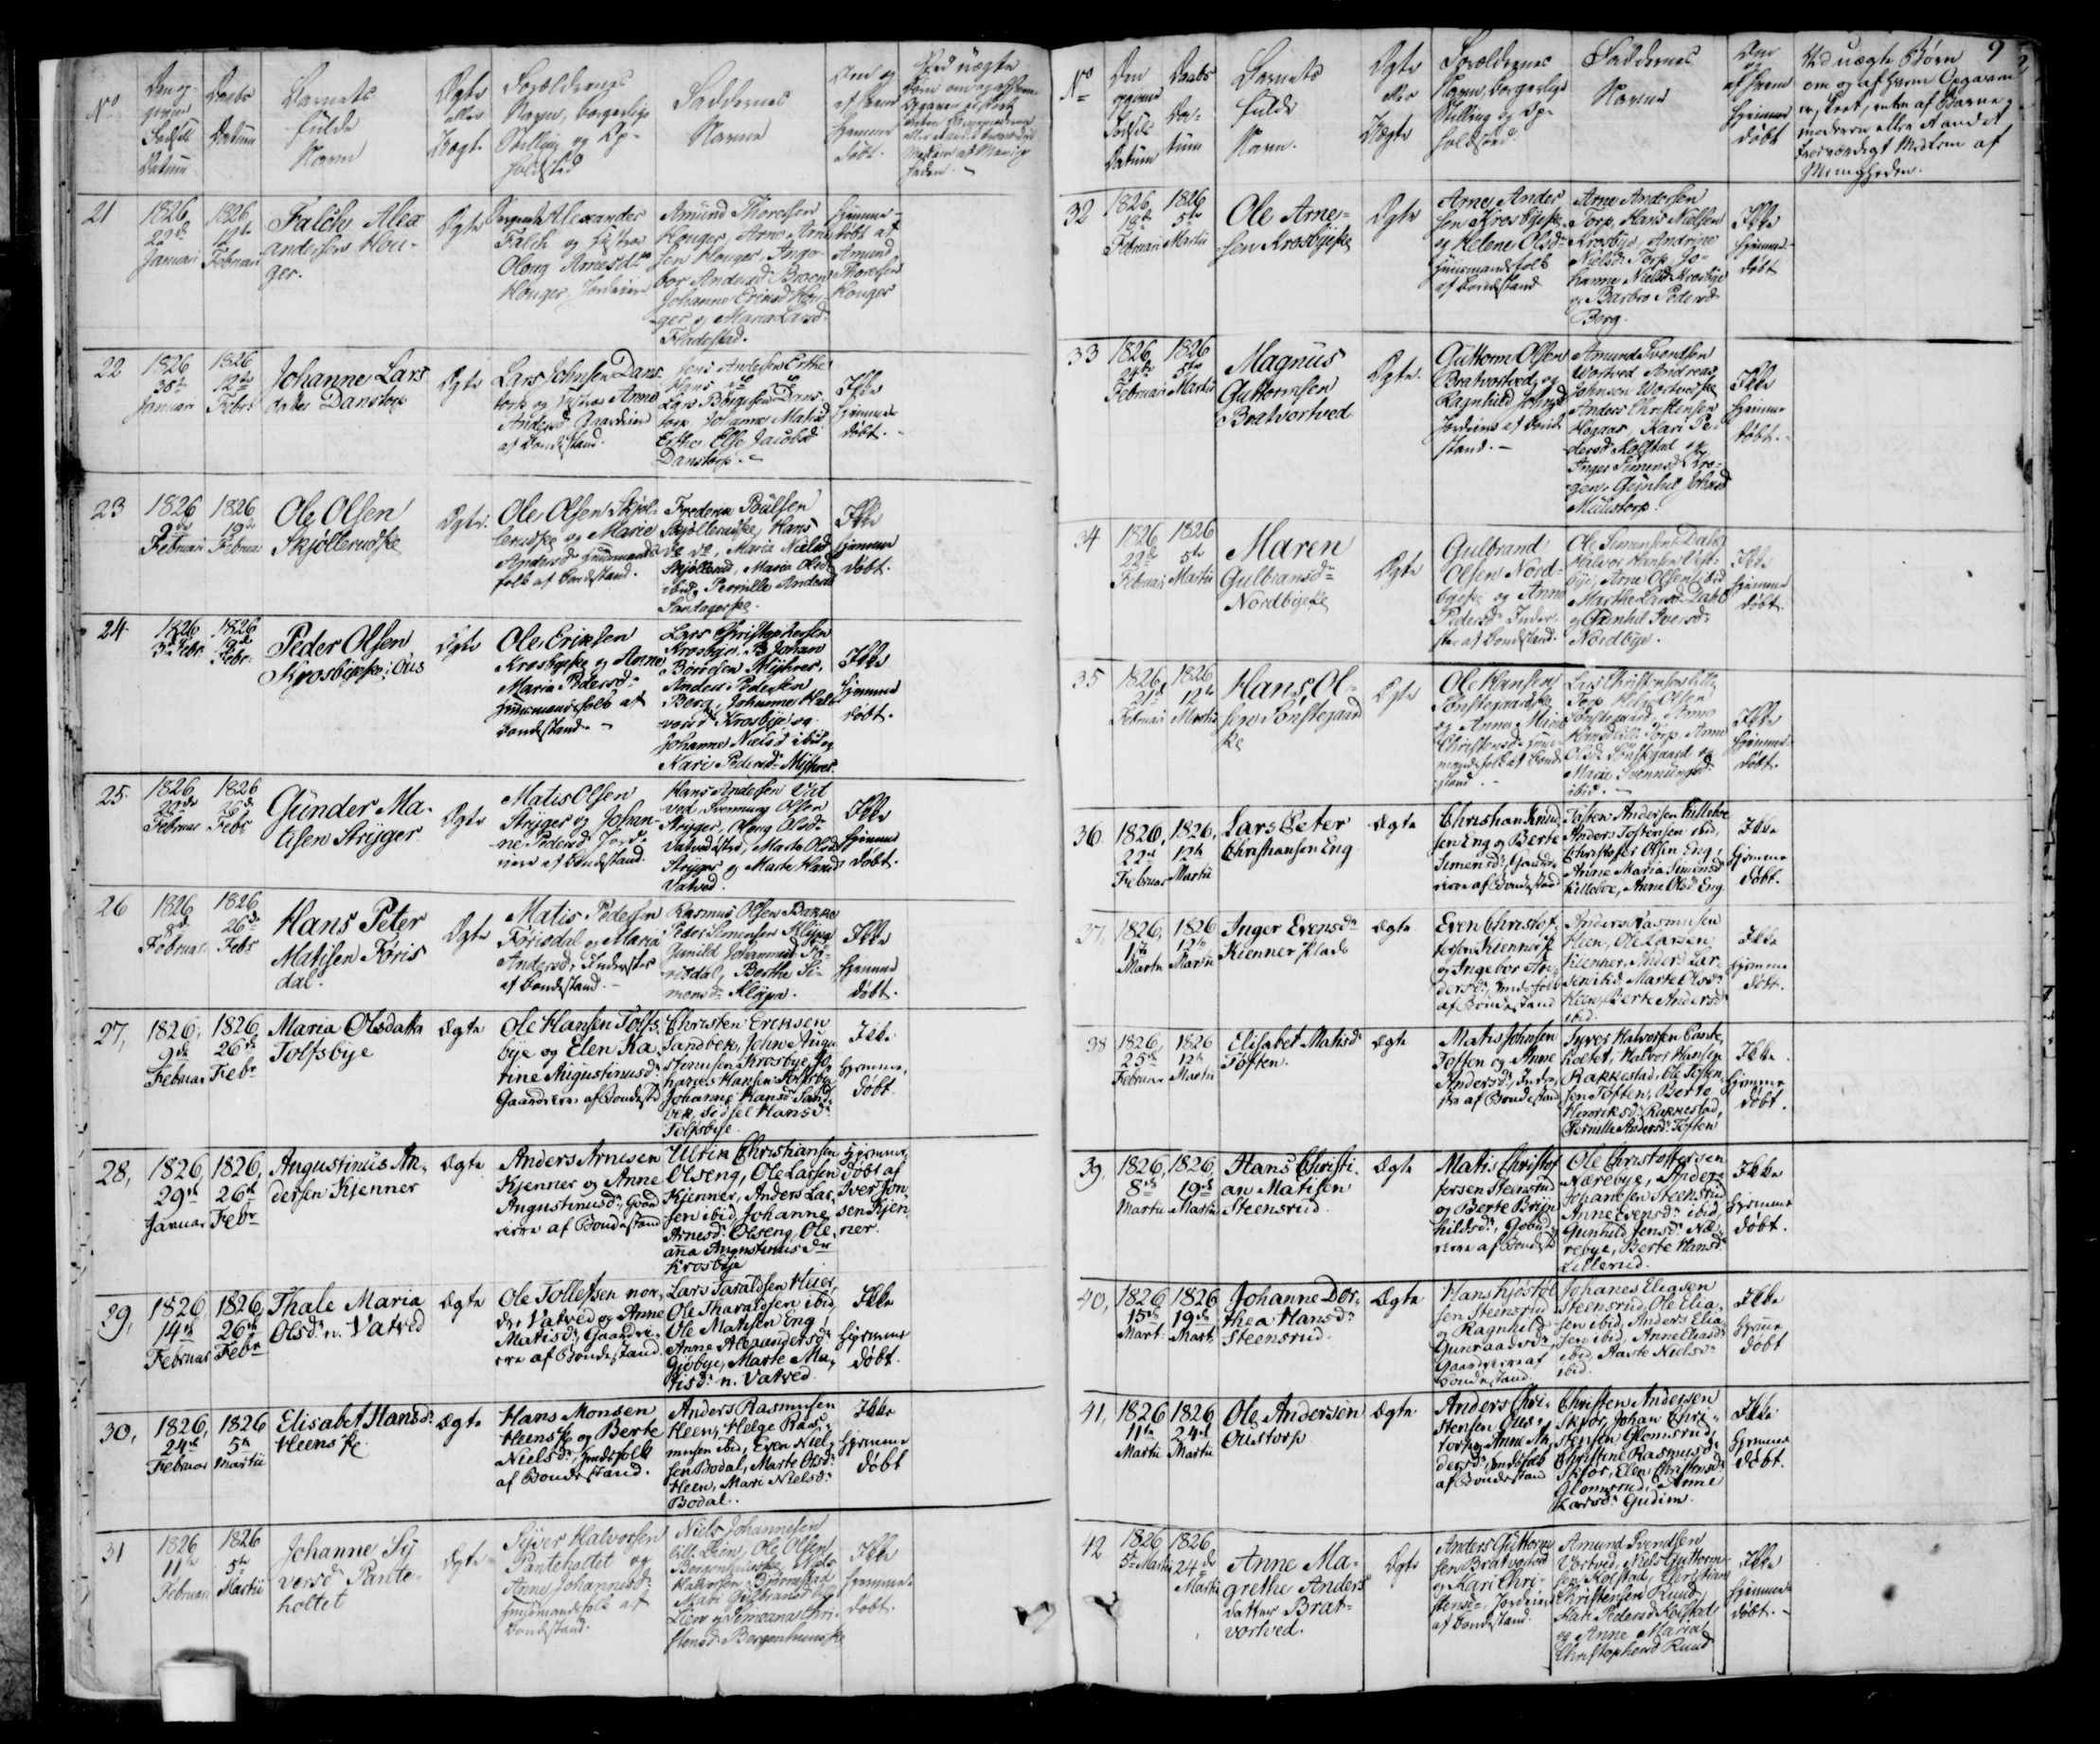 No
Den op-
given
Fødsels
Datum
Daabs
Datum
Barnets
fulde
Navn
Ægte
eller
Uægte
Forældrenes
Navn, borgerlige
Stilling og Op-
holdsted
Faddernes
Navne
Om og
af hvem
hjemme
døbt.
21
1826
22de
Januari
1826
12te
Februari
Falch Alex
andersen Hou-
ger.
Ægte
Sergeant Alexander
Falch og Hustrue
Oloug Arnesdtr
Houger, Jordeiere
Amund Thoresen
Houger, Arne Arne
sen Houger, Inge-
bor Andersd. Broen
Johanne Eriksd Hou-
ger og Maria Larsd
Fladestad.
Hjemme-
døbt af
Amund
Thoresen
Houger
22
1826
30te
Januari
1826
12te
Febr.
Johanne Lars
datter Danstorp
Ægte
Lars Johnsen Dans-
torp og Hustrue Anne
Andersd. Gaardeiere
af Bondestand.
Jens Andersen Erthe
Lars Börgesen Dans-
torp, Johanne Matisd
Erthe, Else Jacobsd
Danstorp.
Ikke
hjemme
døbt.
23
1826
2de
Februari
1826
19de
Februar
Ole Olsen
Skjøllerudske
Ægte.
Ole Olsen Skjøl-
lerudske og Marie
Andersd. Huusmands
folk af Bondestand.
Frederik Poulsen
Skjøllerudske, Hans
do do, Maria Nielsd
Skjøllerud, Maria Olsd
ibid, Pernille Andersd
Sandagerske.
Ikke
hjemme
døbt.
24.
1826
3de Febr.
1826
19de
Febr.
Peder Olsen
Krosbyeske: Ous
Ægte
Ole Eriksen
Krosbyeske og Anne
Maria Pedersd.
Huusmandsfolk af
Bondestand.
Lars Christophersen
Krosbye, Johan
Börresen Mijhrer,
Anders Pedersen
Berg, Johanne Hal-
vorsd Krosbye og
Johanne Nielsd ibid og
Kari Pedersd. Mijhrer.
Ikke
hjemme
døbt.
25.
1826
20de
Februar
1826
26de
Febr
Gunder Ma-
tisen Stryger
Ægte
Matis Olsen
Stryger og Johan-
ne Pedersd. Jord-
eiere af Bondestand.
Hans Andersen Vat
ved, Svennung Olsen
Stryger, Oloug Olsd.
Vatvedöstre, Marte Olsd
Stryger og Marte Hansd
Vatved.
Ikke
hjemme
døbt.
26
1826
8de
Februar
1826
26de
Febr
Hans Peter
Matisen Föris
dal.
Ægte
Matis Pedersen
Förisdal og Maria
Andersd, Inderster
af Bondestand.
Rasmus Olsen Bakke
Peder Simensen Kløjpa
Gunild Johannesd Fö-
risdal, Berthe Si-
mensd. Kløjpa.
Ikke
hjemme
døbt.
27,
1826,
9de
Februar
1826
26de
Febr
Maria Olsdatter
Tolfsbye
Ægte
Ole Hansen Tolfs-
bye og Elen Ka-
trine Augustinusd:
Gaardeiere af Bondestd
Christen Eriksen
Sandbek, John Augu
stinusen Krosbye, Jo-
hannes Hansen Tolfsbye
Johanne Hansd: Sand-
bek, Sidsel Hansd:
Tolfsbye.
Ikke
hjemme-
døbt
28,
1826,
29de
Januar
1826,
26de
Febr
Augustinus An-
dersen Kjenner
Ægte
Anders Arnesen
Kjenner og Anne
Augustinusd, Gaard
eiere af Bondestand
Ulrik Christiansen
Olseng, Ole Larsen
Kjenner, Anders Lar-
sen ibid, Johanne
Arnesd: Olseng, Ole-
ana Augustinusdtr
Krosbye
Hjemme-
døbt af
Iver Jon-
sen Kjen-
ner.
29,
1826,
14de
Februar
1826,
26de
Febr
Thale Maria
Olsd: n. Vatved
Ægte
Ole Tollefsen nor-
dre Vatved og Anne
Matisd: Gaardei-
ere af Bondestand.
Lars Taraldsen Heier,
Ole Tharaldsen ibid,
Ole Matisen Eng,
Anne Alexandersd:
Gjöbye, Marte Ma-
tisd: n. Vatved.
Ikke
hjemme
døbt.
30,
1826,
24de
Februar
1826
5te
Martii
Elisabet Hansd:
Heenske.
Ægte
Hans Monsen
Heenske og Berte
Nielsd:, Huusfolk
af Bondestand.
Anders Rasmusen
Heen, Helge Ras-
musen ibid, Even Niel-
sen Bodal, Marte Olsd:
Heen, Mari Nielsd:
Bodal.
Ikke
hjemme
døbt
31
1826
11te
Februari
1826
5te
Martii
Johanne Sy
versd. Pante-
holtet
Ægte
Syver Halvorsen
Panteholtet og
Anne Johannesd.
Huusmandsfolk af
Bondestand.
Niels Johannesen
lille Lien, Ole Olsen
Borgenhuusske, Niels
Halvorsen Björnestad
Mari Gulbrandsd lille
Lien og Simeana Chri-
stensd. Borgenhuusske
Ikke
hjemme-
døbt.
9
No
Den
opgivne
Fødsels
Datum
Daabs
Da-
tum
Barnets
fulde
Navn.
Ægte
eller
Uægte
Forældrenes
Navn, borgerlige
Stilling og Op-
holdsted.
Faddernes
Navne
Om
og
af hvem
hjemme
døbt
Ved uægte Børn
om og af hvem Opgaven
er skeet, enten af Barne-
moderen eller et andet
troværdigt Medlem af
Menigheden.
32
1826
18de
Februari
1826
5te
Martii
Ole Arne-
sen Krosbyeske
Ægte
Arne Ander
sen Krosbyeske
og Helene Olsd.
Huusmandsfolk
af Bondestand
Arne Andersen
Torp, Hans Nielsen
Krosbye, Andrine
Nielsd. Torp, Jo-
hanne Nielsd Krosbye
og Barbro Pedersd.
Berg.
Ikke
hjemme-
døbt
33
1826
25de
Februari
1826
5te
Martii
Magnus
Guttormsen
Bratvortved
Ægte.
Guttorm Olsen
Bratvortved og
Ragnhild Johnsd
Jordeiere af Bonde
stand.
Amund Svendsen
Wortved, Andreas
Johnsen Wortvedske
Anders Christensen
Hogaas, Kari Pe-
dersd Kolstad og
Inger Simensd Kro-
gen, Gunhild Johnsd
Mulustorp.
Ikke
hjemme
døbt.
34
1826
22de
Februari
1826
5te
Martii
Maren
Gulbransd.
Nordbyeke
Ægte
Gulbrand
Olsen Nord-
byeske og Anne
Pedersd. Inder-
ster af Bondestand.
Ole Simensen Dahl
Halvor Hansen
Arne Olsen ibid
Marthe Larsd. Dahl
og Gunhild Iversd.
Nordbye.
Ikke
hjemme
døbt.
35
1826
21de
Februari
1826
12te
Martii
Hans Ol-
sen Tønstegaard
ske
Ægte
Ole Hansen
Tønstegaardske
og Anne Marie
Christensd. Huus-
mandsfolk af Bonde
stand
Lars Christensen lille
Torp, Helge Olsen
Tønstegaard, Anne
Hansd lille Torp, Anne
Olsd. Tønstegaard og
Marie Svennungsd.
ibid.
Ikke
hjemme-
døbt.
36.
1826,
22de
Februar
1826,
12te
Martii
Lars Peter
Christiansen Eng
Ægte
Christian Knud
sen Eng og Berte
Simensd: Gaard-
eiere af Bondestand
Tosten Andersen Killeboe
Anders Tostensen ibid,
Christofer Olsen Eng,
Anne Maria Simensd
Killeboe, Anne Olsd Eng
Ikke
hjemme
døbt.
37,
1826,
1ste
Martii
1826
12te
Martii
Inger Evensdr
Kienner Plads
Ægte
Even Christof-
fersen Kienner P
og Ingebor An-
dersd:, Huusfolk
af Bondestand
Anders Rasmusen
Heen, Ole Larsen
Kienner, Anders Lar-
sen ibid, Marte Olsd:
Heen, Berte Andersd
ibid.
Ikke
hjemme
døbt.
38
1826,
25de
Februar
1826
12te
Martii
Elisabet Matisd:
Tøften.
Ægte
Matis Johnsen
Toften og Anne
Andersd:, Inder-
ster af Bondestand
Syver Halvorsen Pante-
holtet, Halvor Hansen
Rakkestad, Ole Tosten-
sen Tøften, Berte
Henriksd: Rakkestad,
Pernille Andersd: Tøften
Ikke
hjemme
døbt.
39,
1826,
8de
Martii
1826,
19de
Martii
Hans Christi-
an Matisen
Steensrud.
Ægte
Matis Christof
fersen Steensrud
og Berte Bryn-
hildsd:, Gaard-
eiere af Bondest
Ole Christoffersen
Nærebye, Anders
Johannesen Steensrud
Anne Evensd: ibid,
Gunhild Jensd: Næ-
rebye, Berte Hansd:
Lillerud.
Ikke
hjemme
døbt.
40,
1826
15de
Mart:
1826
19de
Mart:
Johanne Dor-
thea Hansd:
Steensrud.
Ægte
Hans Kjöstol
sen Steinsrud
og Ragnhild
Gunraadsd:
Gaardeiere af
Bondestand.
Johanes Eliasen
Steensrud, Ole Elia-
sen ibid, Anders Elia-
sen ibid, Anne Eliasd:
ibid, Aaste Nielsd:
ibid.
Ikke
hjemme
døbt
41,
1826
11te
Martii
1826
24de
Martii
Ole Andersen
Oustorp
Ægte
Anders Chri-
stensen Ous-
torp og Anne An-
dersd:, Huusfolk
af Bondestand
Christen Andersen
Skjor, Johan Chri-
stensen Glomsrud,
Christine Rasmusd:
Skjor, Elen Christensd:
Glomsrud, Anne
Larsd: Gudim.
Ikke
hjemme
døbt.
42
1826
5te Martii
1826
24de
Martii
Anne Ma-
grethe Anders
datter Brat-
vortved.
Ægte
Anders Guttorm
sen Bratvortved
og Kari Chri-
stensd., Jordeiere
af Bondestand.
Amund Svendsen
Vortved, Niels Guttorm-
sen Kolstad, Christian
Christensen Ruud,
Kari Pedersd Kolstad
og Anne Maria
Christophersd Ruud
Ikke
hjemme
døbt.